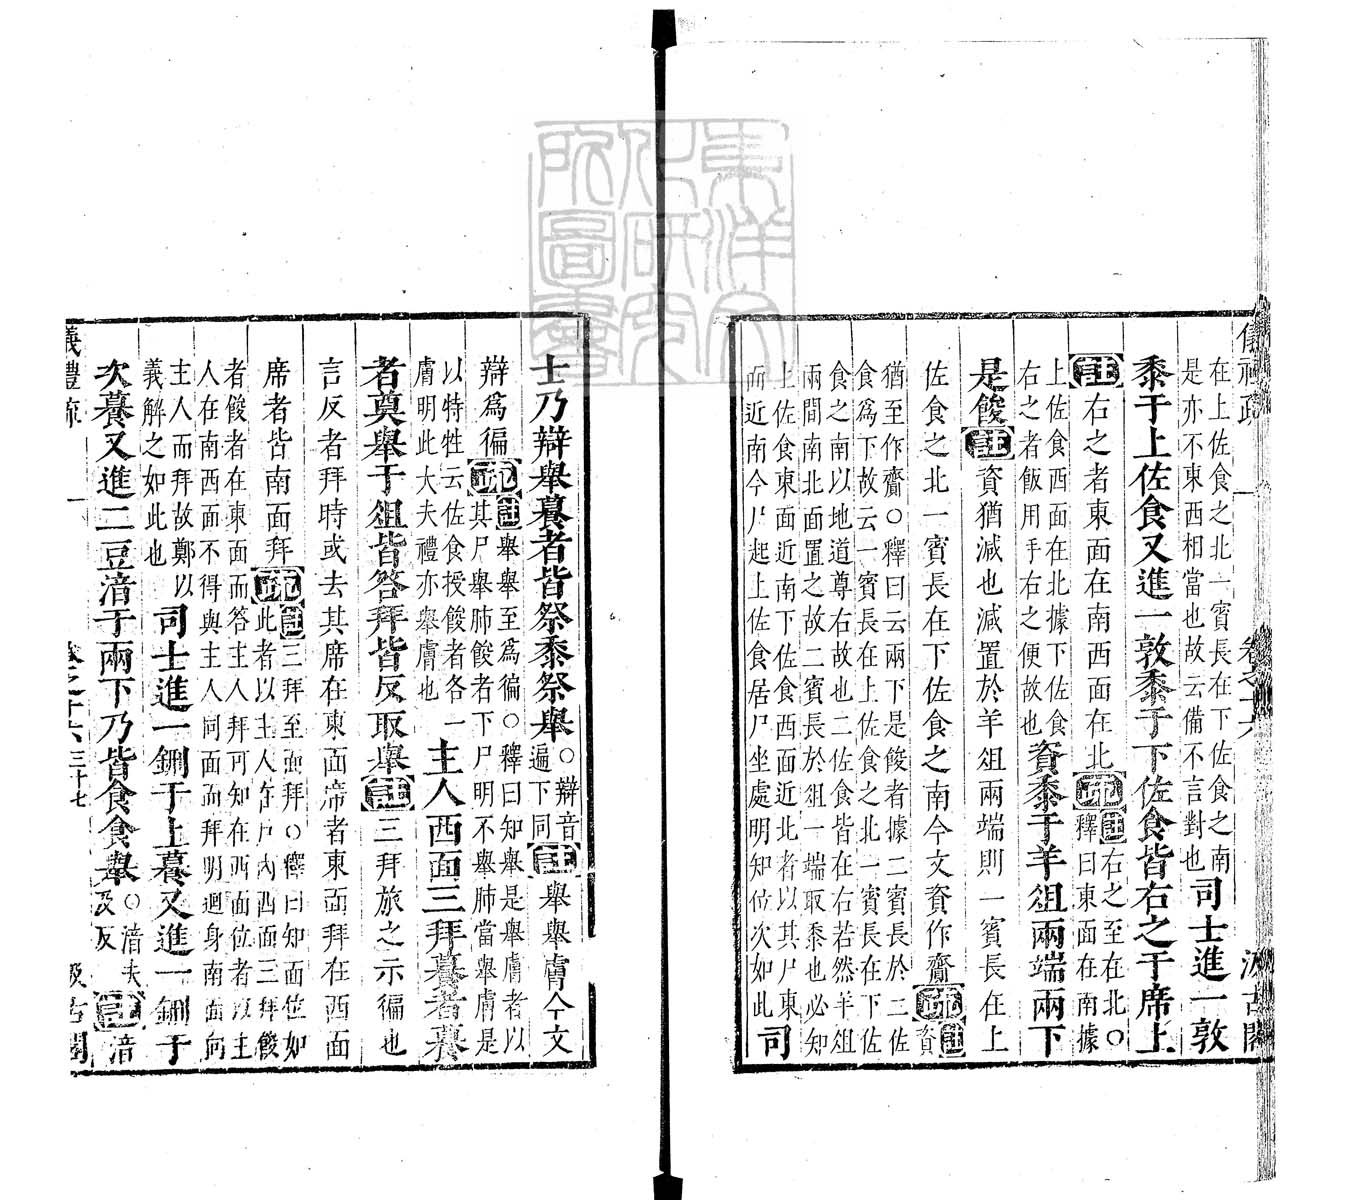 在上佐食之北一賓長在下佐食之南
是亦不東西相當也故云備不言對也
司士進一敦
黍于上佐食又進一敦黍于下佐食皆右之于席上
註右之者東面在南西面在北疏註右之至在北〇
釋曰東面在南據
上佐食西面在北據下佐食
右之者飯用手右之便故也
資黍于羊俎兩端兩下
是餕註資猶減也減置於羊俎兩端則一賓長在上
佐食之北一賓長在下佐食之南今文資作齎疏註資
猶至作齎〇釋曰云兩下是餕者據二賓長於二佐
食爲下故云一賓長在上佐食之北一賓長在下佐
食之南以地道尊右故也二佐食皆在右若然羊俎
兩間南北面置之故二賓長於俎一端取黍也必知
上佐食東面近南下佐食西面近北者以其尸東
面近南今尸起上佐食居尸坐處明知位次如此
司
士乃辯舉養者皆祭黍祭舉
〇辯音
遍下同
註舉舉膚今文
辯爲徧疏註舉舉至爲徧〇釋曰知舉是舉膚者以
其尸舉肺餕者下尸明不舉肺當舉膚是
以特牲云佐食授餕者各一
膚明此大夫禮亦舉膚也
主人西面三拜養者養
者奠舉于俎皆答拜皆反取舉註三拜旅之示徧也
言反者拜時或去其席在東面席者東面拜在西面
席者皆南面拜疏註三拜至面拜〇釋曰知面位如
此者以主人在戶內西面三拜餕
者餕者在東面而答主人拜可知在西面位者以主
人在南西面不得與主人同面而拜明迴身南面向
主人而拜故鄭以
義解之如此也
司士進一鉶于上養又進一鉶于
次養又進二豆湆于兩下乃皆食食舉
〇湆去
及反
註湆
儀禮疏
卷之十六
三十七
汲古閣